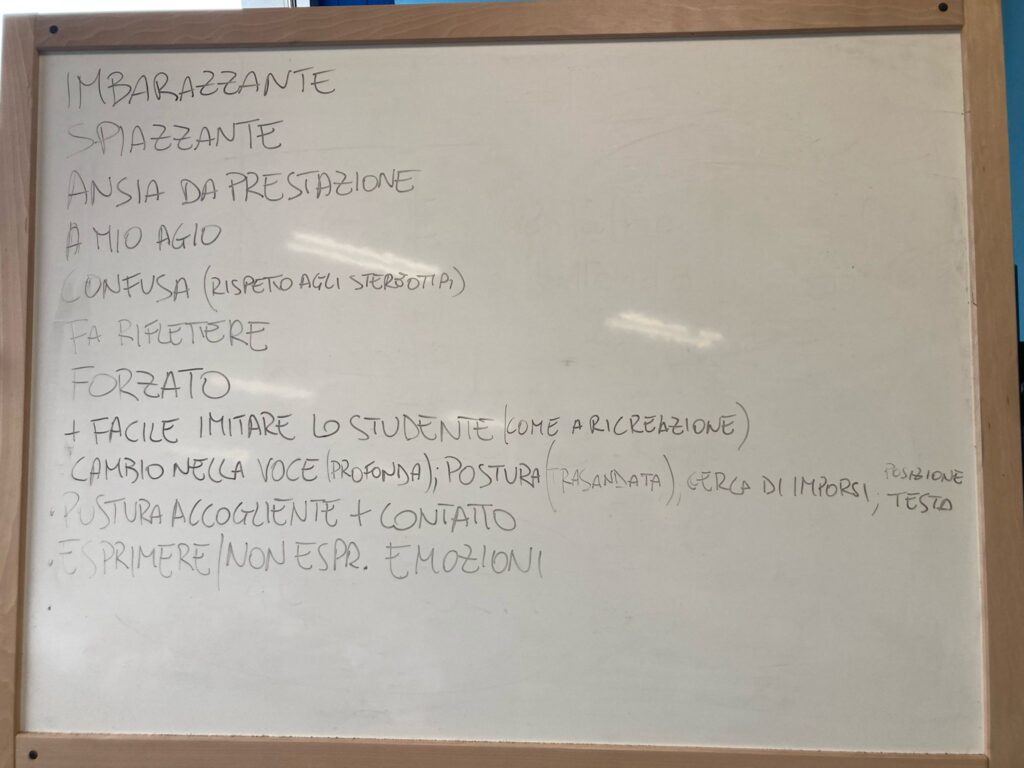 IMBARAZZANTE
SPIAZZANTE
ANSIA DA PRESTAZIONE
A MIO AGIO
CONFUSA (RISPETTO AGLI STEREOTIPI)
FA RIFLETTERE
FORZATO
+ FACILE IMITARE LO STUDENTE (COME A RICREAZIONE)
CAMBIO NELLA VOCE (PROFONDA); POSTURA (TRASANDATA), CERCA DI IMPORSI, POSIZIONE TESTA
• POSTURA ACCOGLIENTE + CONTATTO
• ESPRIMERE/NON ESPR. EMOZIONI
•